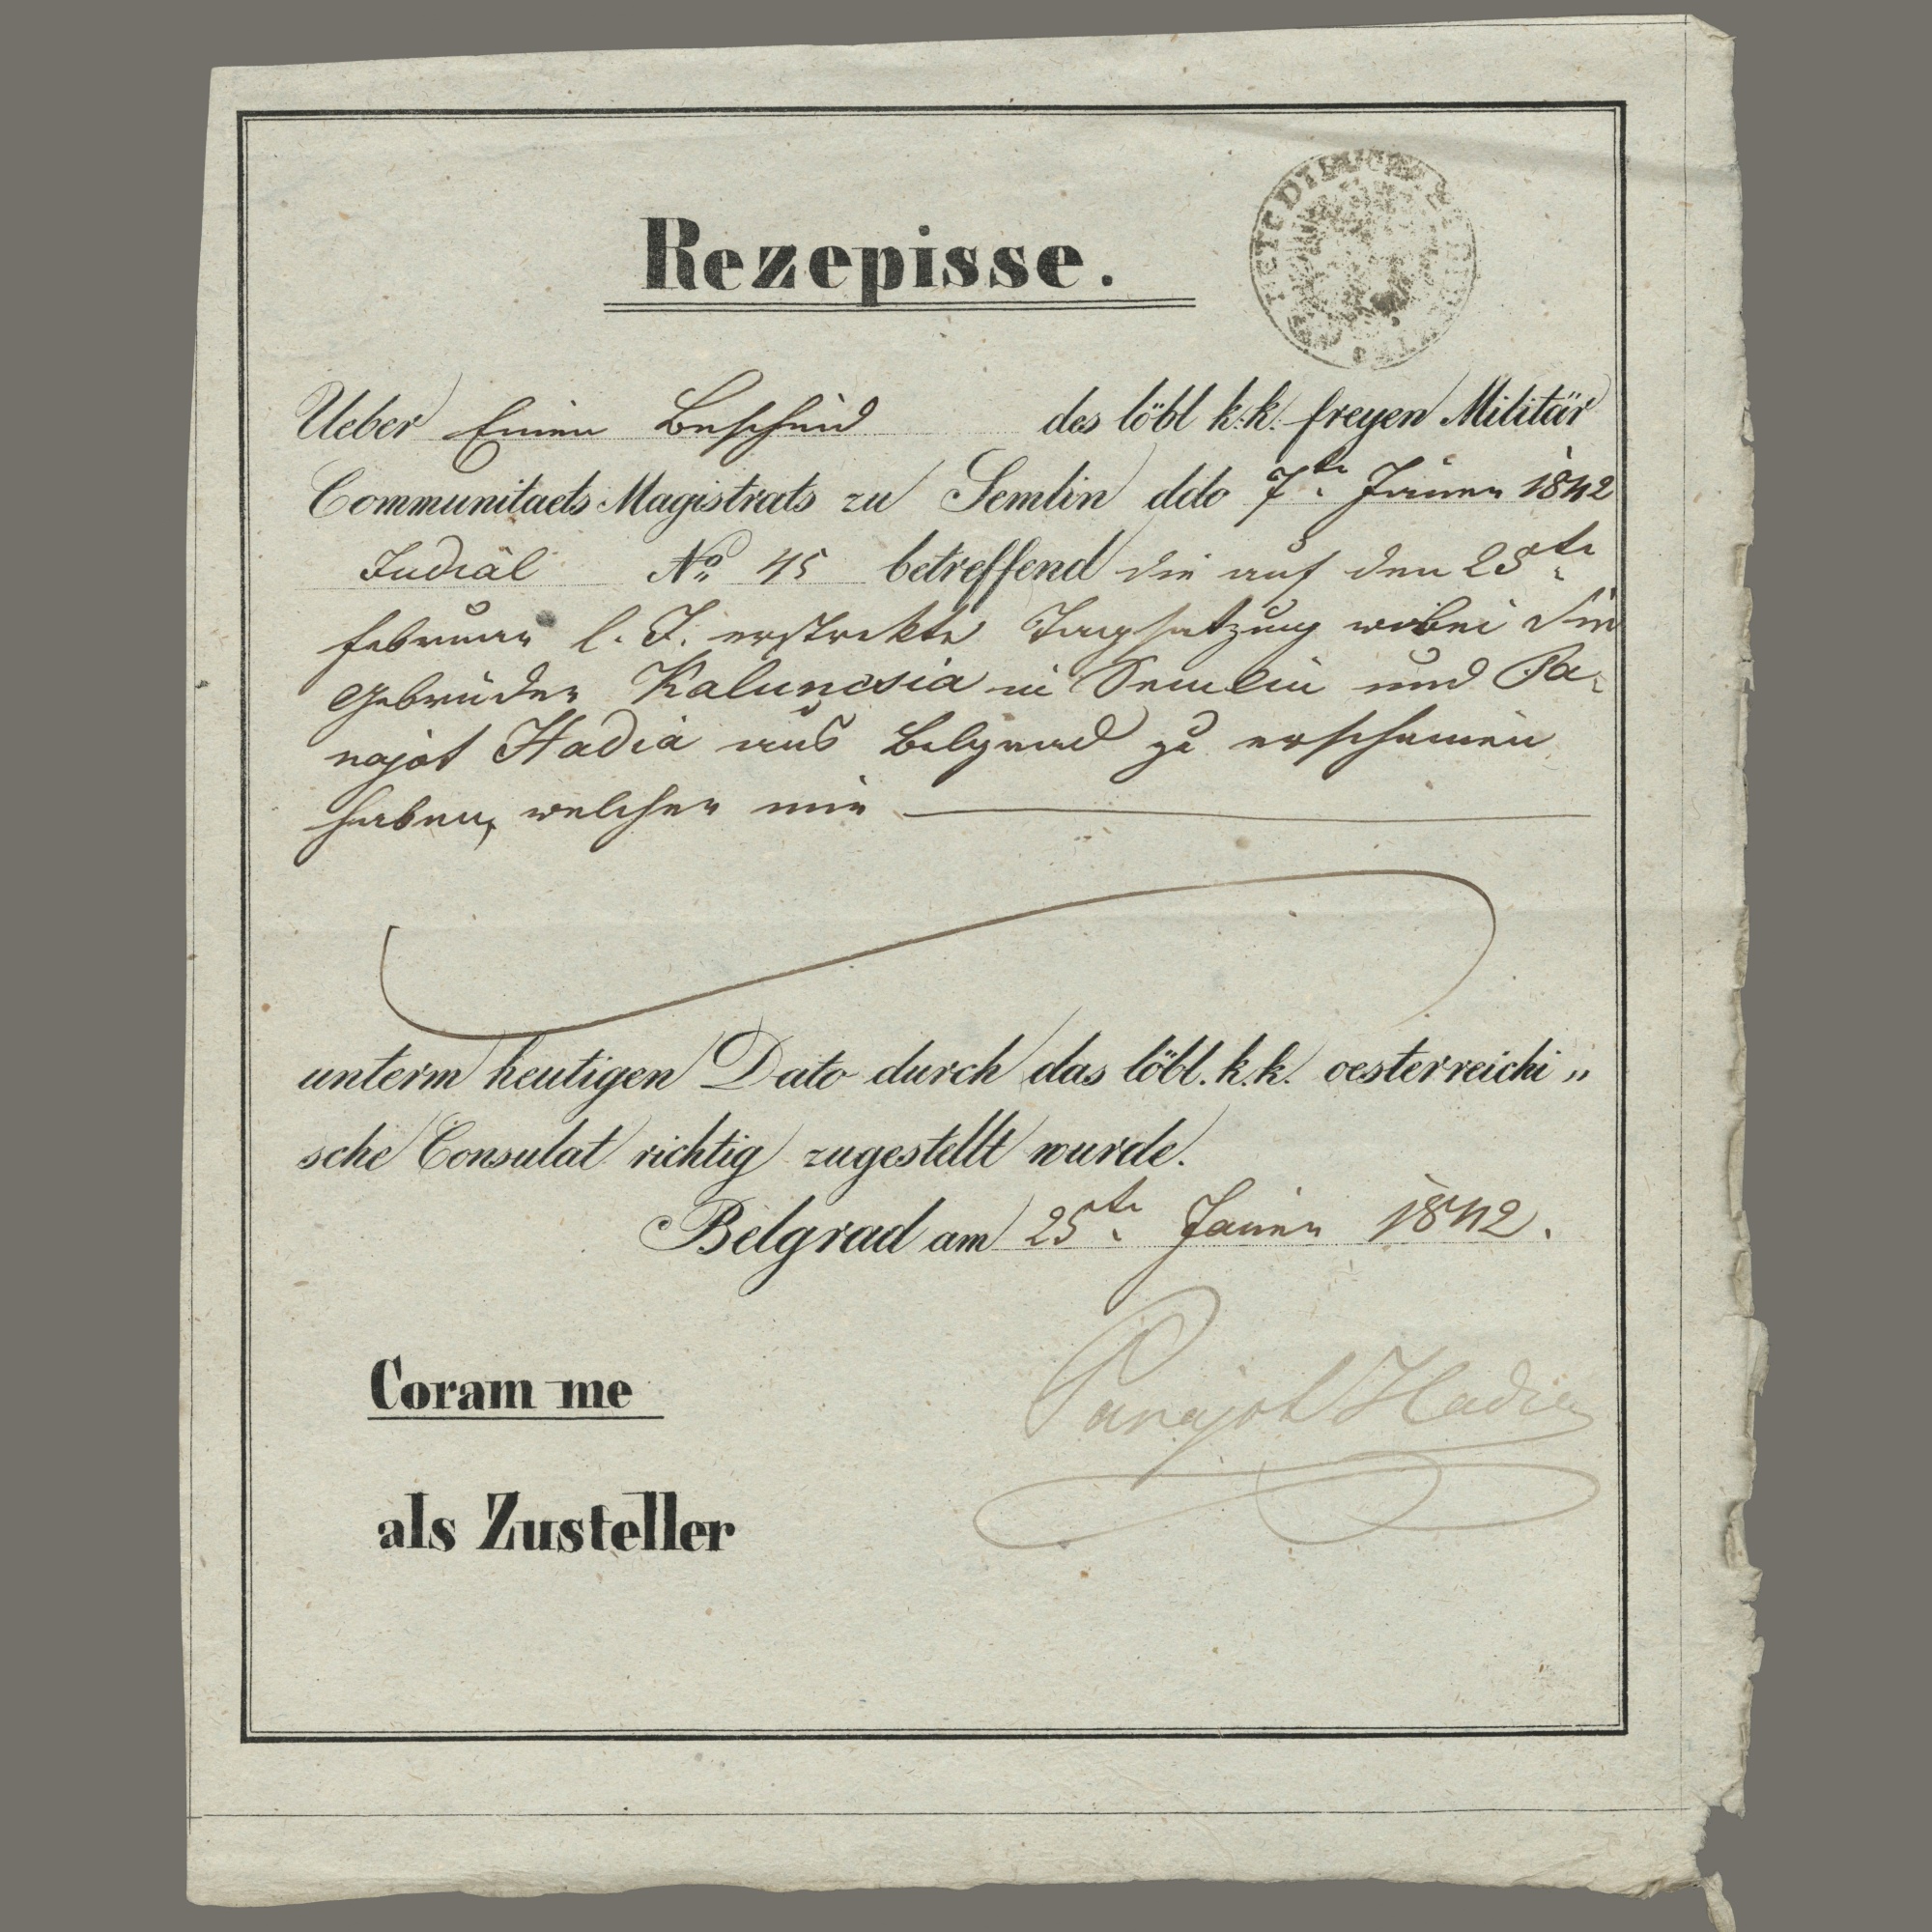 Rezepisse.
Ueber Einen Bescheid des löbl k:k: freyen Militär
Communitaets Magistrats zu Semlin ddo 7te Jäner 1842
Judiäl No 45 betreffend die auf den 25te
Februar l. J. erstrekte Tagsatzung wobei die
Gebrüder Kaluncsia in Semlin und Pa-
najot Hadia aus Belgrad zu erscheinen
haben, welcher mir
unterm heutigen Dato durch das löbl. k.k. oesterreichi„
sche Consulat richtig zugestellt wurde.
Belgrad am 25te Jäner 1842.
Panajot Hadia
Coram me
als Zusteller